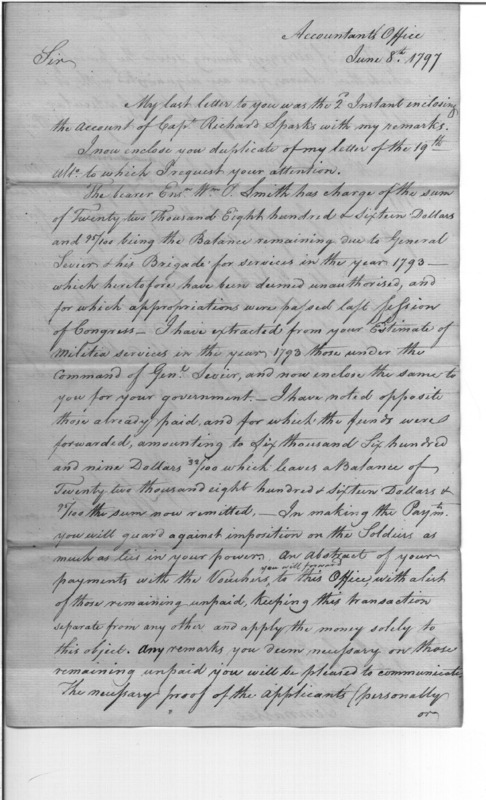 Accountants Office
June 8th. 1797
Sir
My last letter to you was the 2d Instant enclosing
the account of Capt. Richard Sparks with my remarks.
I now enclose you duplicate of my letter of the 19th
ulto. to which I request your attention.
The bearer Ensn. Wm. P. Smith has charge of the sum
of Twenty two Thousand Eight hundred & Sixteen Dollars
and 25/100 being the Balance remaining due to General
Sevier & his Brigade for services in the year 1793 —
which heretofore have been deemed unauthorised, and
for which appropriations were passed last Session
of Congress — I have extracted from your Estimate of
Militia services in the year 1793 those under the
Command of Genl. Sevier, and now enclose the same to
you for your government. — I have noted opposite
those already paid, and for which the funds were
forwarded, amounting to Six thousand Six hundred
and nine Dollars 33/100 which leaves a Balance of
Twenty two thousand eight hundred & sixteen Dollars &
25/100 the sum now remitted. — In making the Paymt.
you will guard against imposition on the Soldiers as
much as lies in your power. An Abstract of your
payments with the Vouchers, you will forward to this Office, with a list
of those remaining unpaid, keeping this transaction
separate from any other and apply the money solely to
this object. Any remarks you deem necessary on those
remaining unpaid you will be pleased to communicate.
The necessary proof of the applicants (personally
or